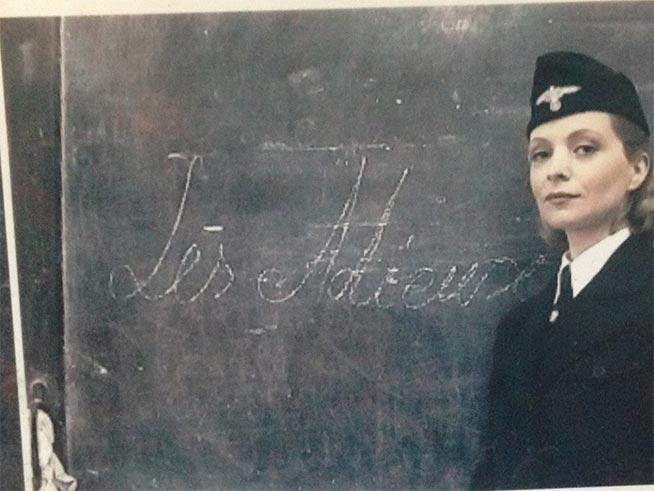 Les Adieux